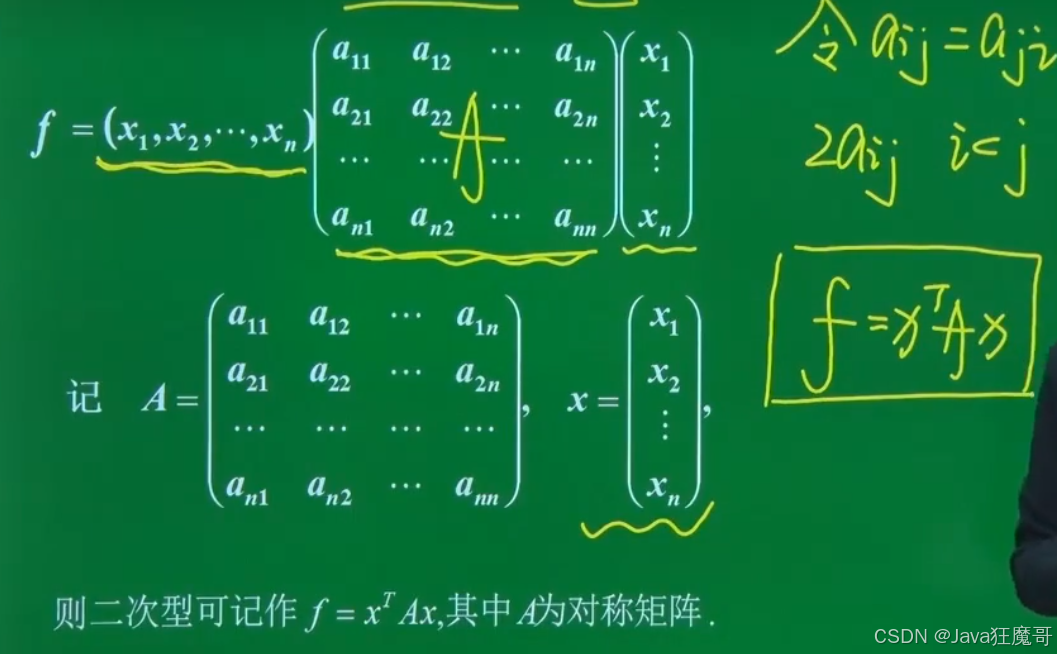 f = (x₁,x₂,⋯,xₙ) ( a₁₁ a₁₂ ⋯ a₁ₙ ) ( x₁ )
( a₂₁ a₂₂ ⋯ a₂ₙ ) ( x₂ )
( ⋯ ⋯ ⋯ ⋯ ) ( ⋮ )
( aₙ₁ aₙ₂ ⋯ aₙₙ ) ( xₙ )
A
令 aij = aji
2aij i< j
f = xᵀAx
记 A = ( a₁₁ a₁₂ ⋯ a₁ₙ ) , x = ( x₁ ) ,
( a₂₁ a₂₂ ⋯ a₂ₙ ) ( x₂ )
( ⋯ ⋯ ⋯ ⋯ ) ( ⋮ )
( aₙ₁ aₙ₂ ⋯ aₙₙ ) ( xₙ )
则二次型可记作 f = xᵀ Ax,其中 A为对称矩阵 .
CSDN @Java狂魔哥